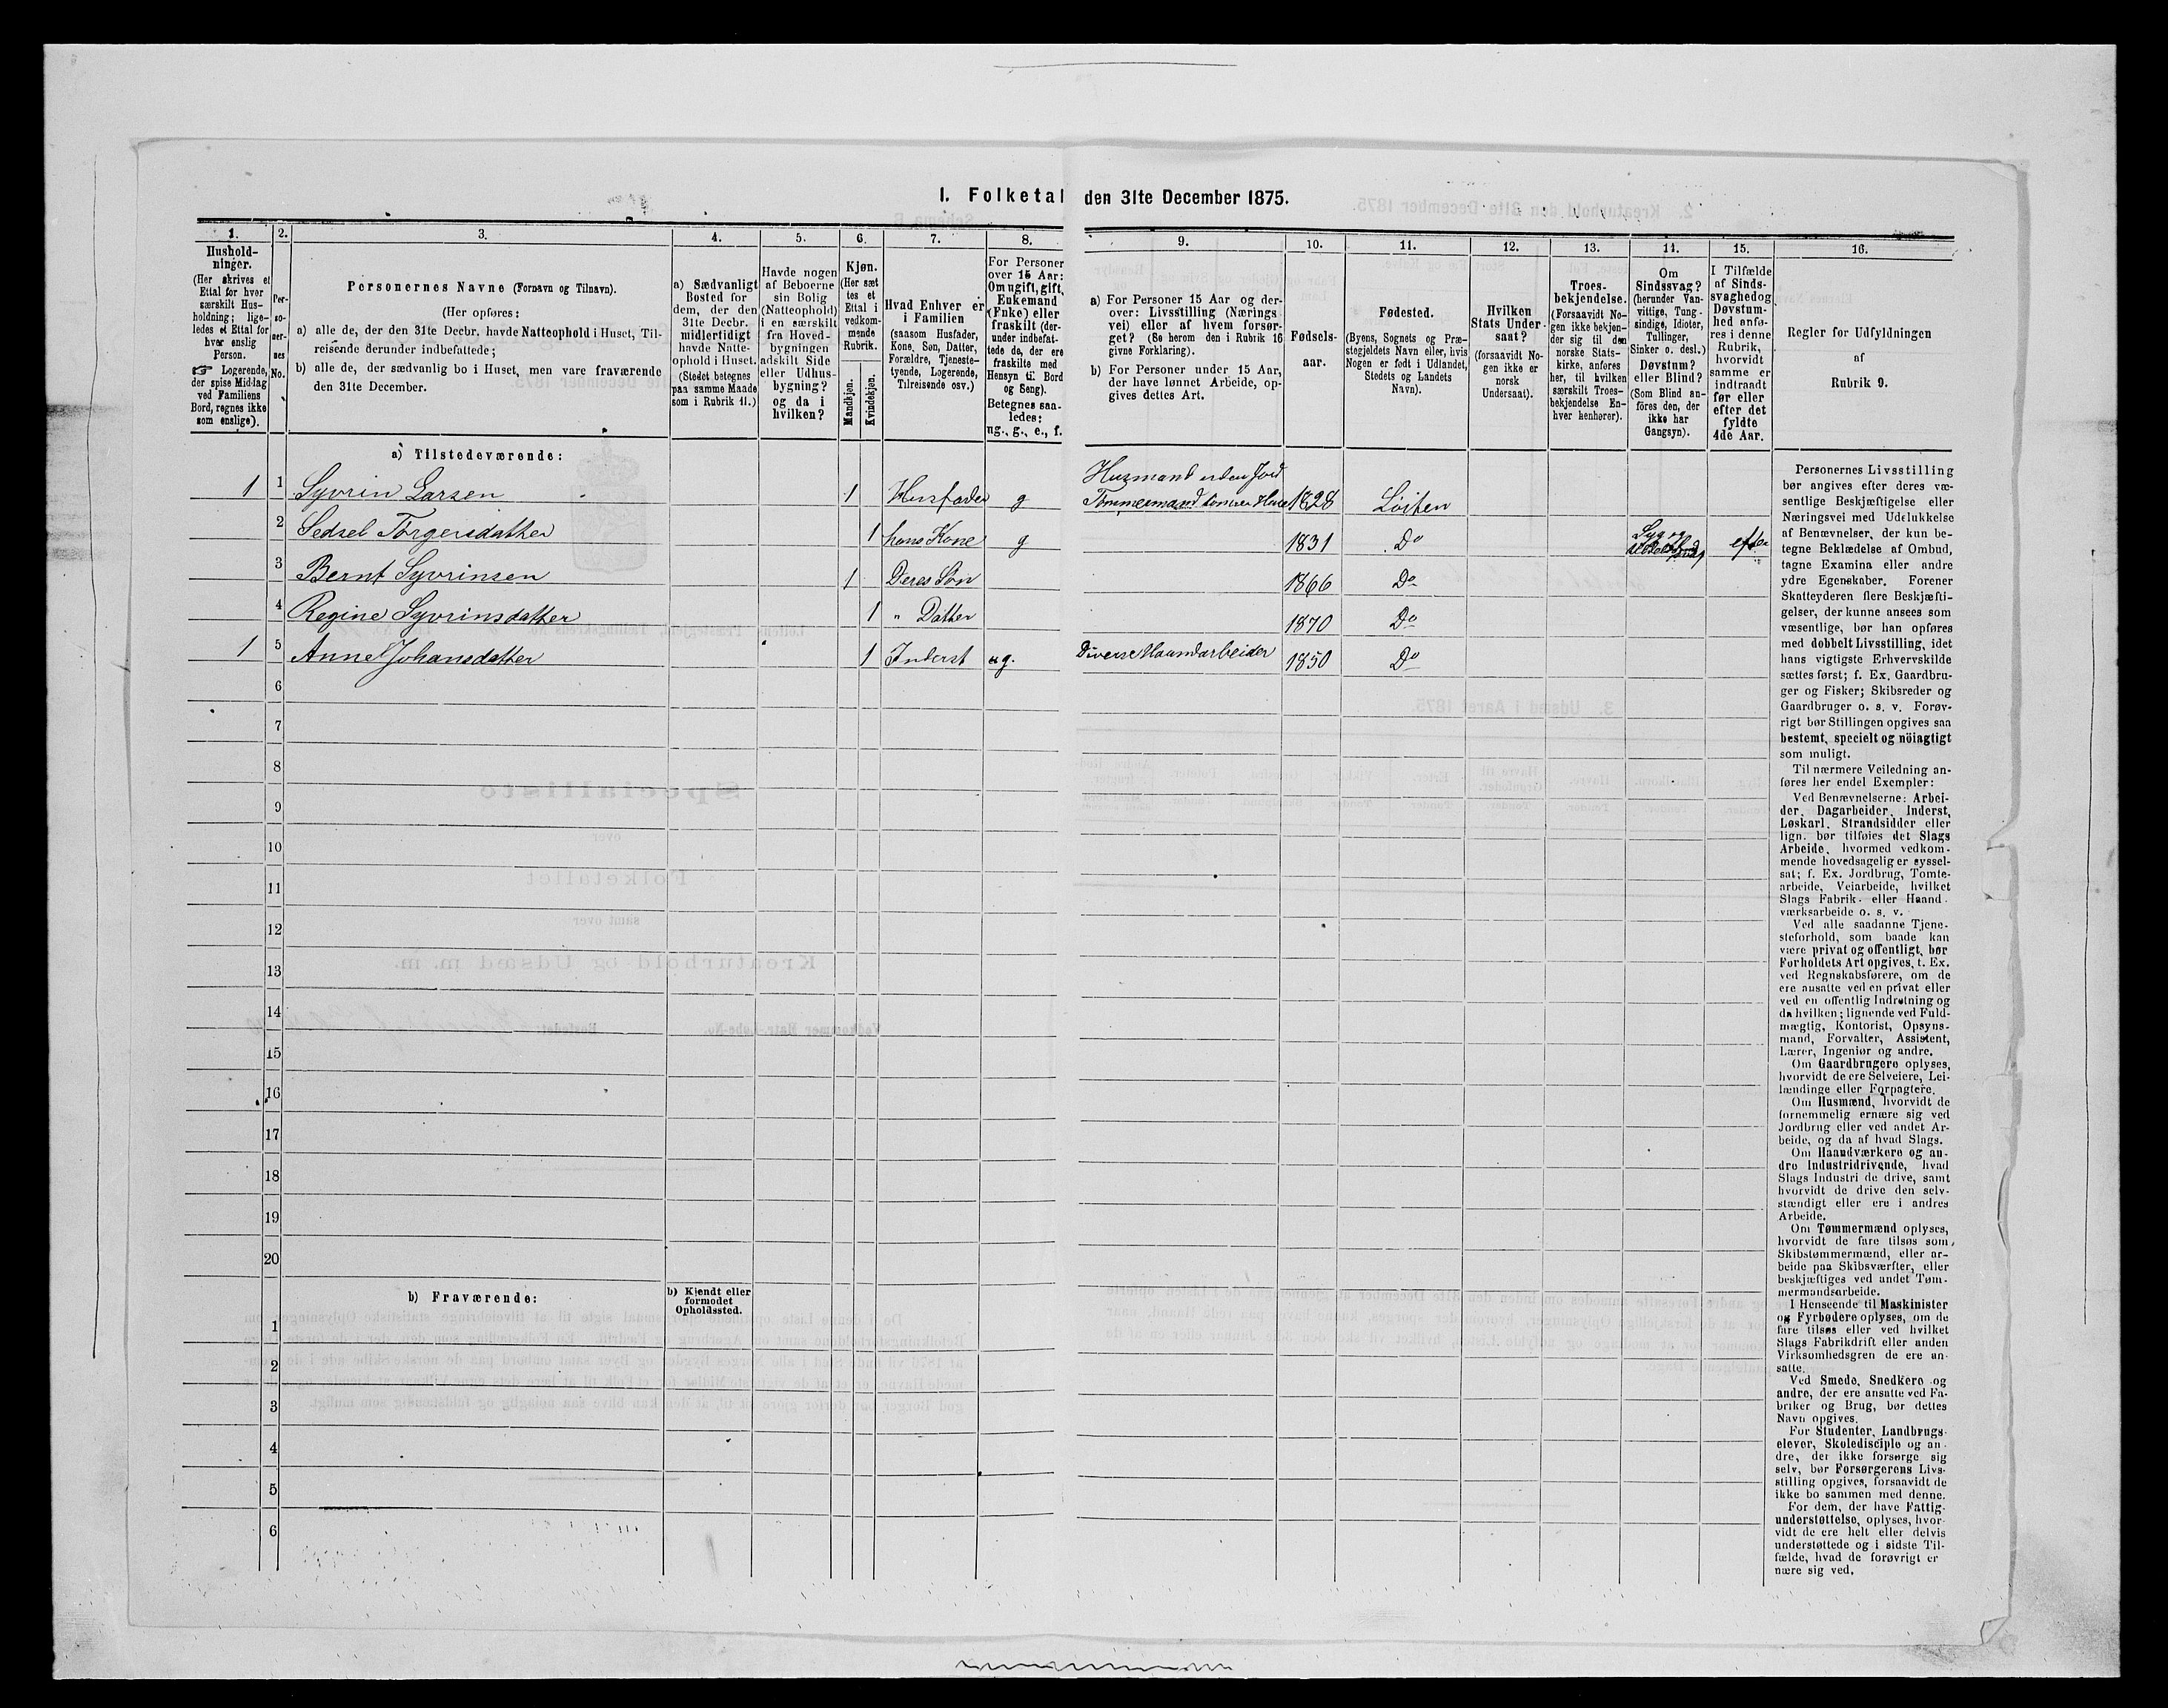 I. Folketal den 31te December 1875.
1.
Hushold-
ninger.
(Her skrives et
Ettal for hver
særskilt Hus-
holdning; lige-
ledes et Ettal for
hver enslig
Person.
☞ Logerende,
der spise Middag
ved Familiens
Bord, regnes ikke
som enslige).
2.
Per-
so-
ner-
nes
No.
3.
Personernes Navne (Fornavn og Tilnavn).
(Her opføres:
a) alle de, der den 31te Decbr. havde Natteophold i Huset, Til-
reisende derunder indbefattede;
b) alle de, der sædvanlig bo i Huset, men vare fraværende
den 31te December.
4.
a) Sædvanligt
Bosted for
dem, der den
31te Decbr.
midlertidigt
havde Natte-
ophold i Huset.
(Stedet betegnes
paa samme Maade
som i Rubrik 11.)
5.
Havde nogen
af Beboerne
sin Bolig
(Natteophold)
i en særskilt
fra Hoved-
bygningen
adskilt Side
eller Udhus-
bygning?
og da i
hvilken?
6.
Kjøn.
(Her sæt
tes et
Ettal i
vedkom-
mende
Rubrik.
Mandkjøn.
Kvindekjøn.
7.
Hvad Enhver er
i Familien
(saasom Husfader,
Kone, Søn, Datter,
Forældre, Tjeneste-
tyende, Logerende,
Tilreisende osv.)
8.
For Personer
over 15 Aar:
Om ugift, gift,
Enkemand
(Enke) eller
fraskilt (der-
under indbefat-
tede de, der ere
fraskilte med
Hensyn til Bord
og Seng).
Betegnes saa-
ledes:
ug., g., e., f.
9.
a) For Personer 15 Aar og der-
over: Livsstilling (Nærings
vei) eller af hvem forsør-
get? (Se herom den i Rubrik 16
givne Forklaring).
b) For Personer under 15 Aar,
der have lønnet Arbeide, op-
gives dettes Art.
10.
Fødsels-
aar.
11.
Fødested.
(Byens, Sognets og Præ-
stegjeldets Navn eller, hvis
Nogen er født i Udlandet,
Stedets og Landets
Navn).
12.
Hvilken
Stats Under-
saat?
(forsaavidt No-
gen ikke er
norsk
Undersaat).
13.
Troes-
bekjendelse.
(Forsaavidt No-
gen ikke bekjen-
der sig til den
norske Stats-
kirke, anføres
her, til hvilken
særskilt Troes-
bekjendelse En-
hver henhører).
14.
Om
Sindssvag?
(herunder Van-
vittige, Tung-
sindige, Idioter,
Tullinger,
Sinker o. desl.)
Døvstum?
eller Blind?
(Som Blind an-
föres den, der
ikke har
Gangsyn).
15.
I Tilfælde
af Sinds-
svaghed og
Døvstum-
hed anfø-
res i denne
Rubrik,
hvorvidt
samme er
indtraadt
før eller
efter det
fyldte
4de Aar.
16.
Regler for Udfyldningen
af
Rubrik 9.
a) Tilstedeværende:
Husmand uden Jord
1 1 Syvrin Larsen 1 Husfader g Tømmermand tømrer Huse 1828 Løiten
2 Sedsel Torgersdatter 1 hans Kone g 1831 Do Syg og efter
3 Bernt Syvrinsen 1 Deres Søn 1866 Do
4 Regine Syvrinsdatter 1 " Datter 1870 Do
1 5 Anne Johansdatter 1 Inderst ug. Diverse Haandarbeider 1850 Do
6
7
8
9
10
11
12
13
14
15
16
17
18
19
20
b) Fraværende:
b) Kjendt eller
formodet
Opholdssted.
1
2
3
4
5
6
Personernes Livsstilling
bør angives efter deres væ-
sentlige Beskjæftigelse eller
Næringsvei med Udelukkelse
af Benævnelser, der kun be-
tegne Beklædelse af Ombud,
tagne Examina eller andre
ydre Egenskaber. Forener
Skatteyderen flere Beskjæfti-
gelser, der kunne ansees som
væsentlige, bør han opføres
med dobbelt Livsstilling, idet
hans vigtigste Erhvervskilde
sættes først; f. Ex. Gaardbru-
ger og Fisker; Skibsreder og
Gaardbruger o. s. v. Forøv-
rigt bør Stillingen opgives saa
bestemt, specielt og nöiagtigt
som muligt.
Til nærmere Veiledning an-
føres her endel Exempler:
Ved Benævnelserne: Arbei-
der, Dagarbeider, Inderst,
Løskarl, Strandsidder eller
lign. bør tilføies det Slags
Arbeide, hvormed vedkom-
mende hovedsagelig er syssel-
sat; f. Ex. Jordbrug, Tomte-
arbeide, Veiarbeide, hvilket
Slags Fabrik- eller Haand-
værksarbeide o. s. v.
Ved alle saadanne Tjene-
steforhold, som baade kan
være privat og offentligt, bør
Forholdets Art opgives, t. Ex.
ved Regnskabsførere, om de
ere ansatte ved en privat eller
ved en offentlig Indretning og
da hvilken; lignende ved Fuld-
mægtig, Kontorist, Opsyns-
mand, Forvalter, Assistent,
Lærer, Ingeniør og andre.
Om Gaardbrugere oplyses,
hvorvidt de ere Selveiere, Lei-
lændinge eller Forpagtere.
Om Husmænd, hvorvidt de
fornemmelig ernære sig ved
Jordbrug eller ved andet Ar-
beide, og da af hvad Slags.
Om Haandværkere og an-
dre Industridrivende, hvad
Slags Industri de drive, samt
hvorvidt de drive den selv-
stændigt eller ere i andres
Arbeide.
Om Tømmermænd oplyses,
hvorvidt de fare tilsøs som
Skibstømmermænd, eller ar-
beide paa Skibsværfter, eller
beskjæftiges ved andet Tøm-
mermandsarbeide.
I Henseende til Maskinister
og Fyrbødere oplyses, om de
fare tilsøs eller ved hvilket
Slags Fabrikdrift eller anden
Virksomhedsgren de ere an-
satte.
Ved Smede, Snedkere og
andre, der ere ansatte ved Fa-
briker og Brug, bør dettes
Navn opgives.
For Studenter, Landbrugs-
elever, Skoledisciple og an-
dre, der ikke forsørge sig
selv, bør Forsørgerens Livs-
stilling opgives, forsaavidt de
ikke bo sammen med denne.
For dem, der have Fattig-
understøttelse, oplyses, hvor-
vidt de ere helt eller delvis
understøttede og i sidste Til-
fælde, hvad de forøvrigt er
nære sig ved.